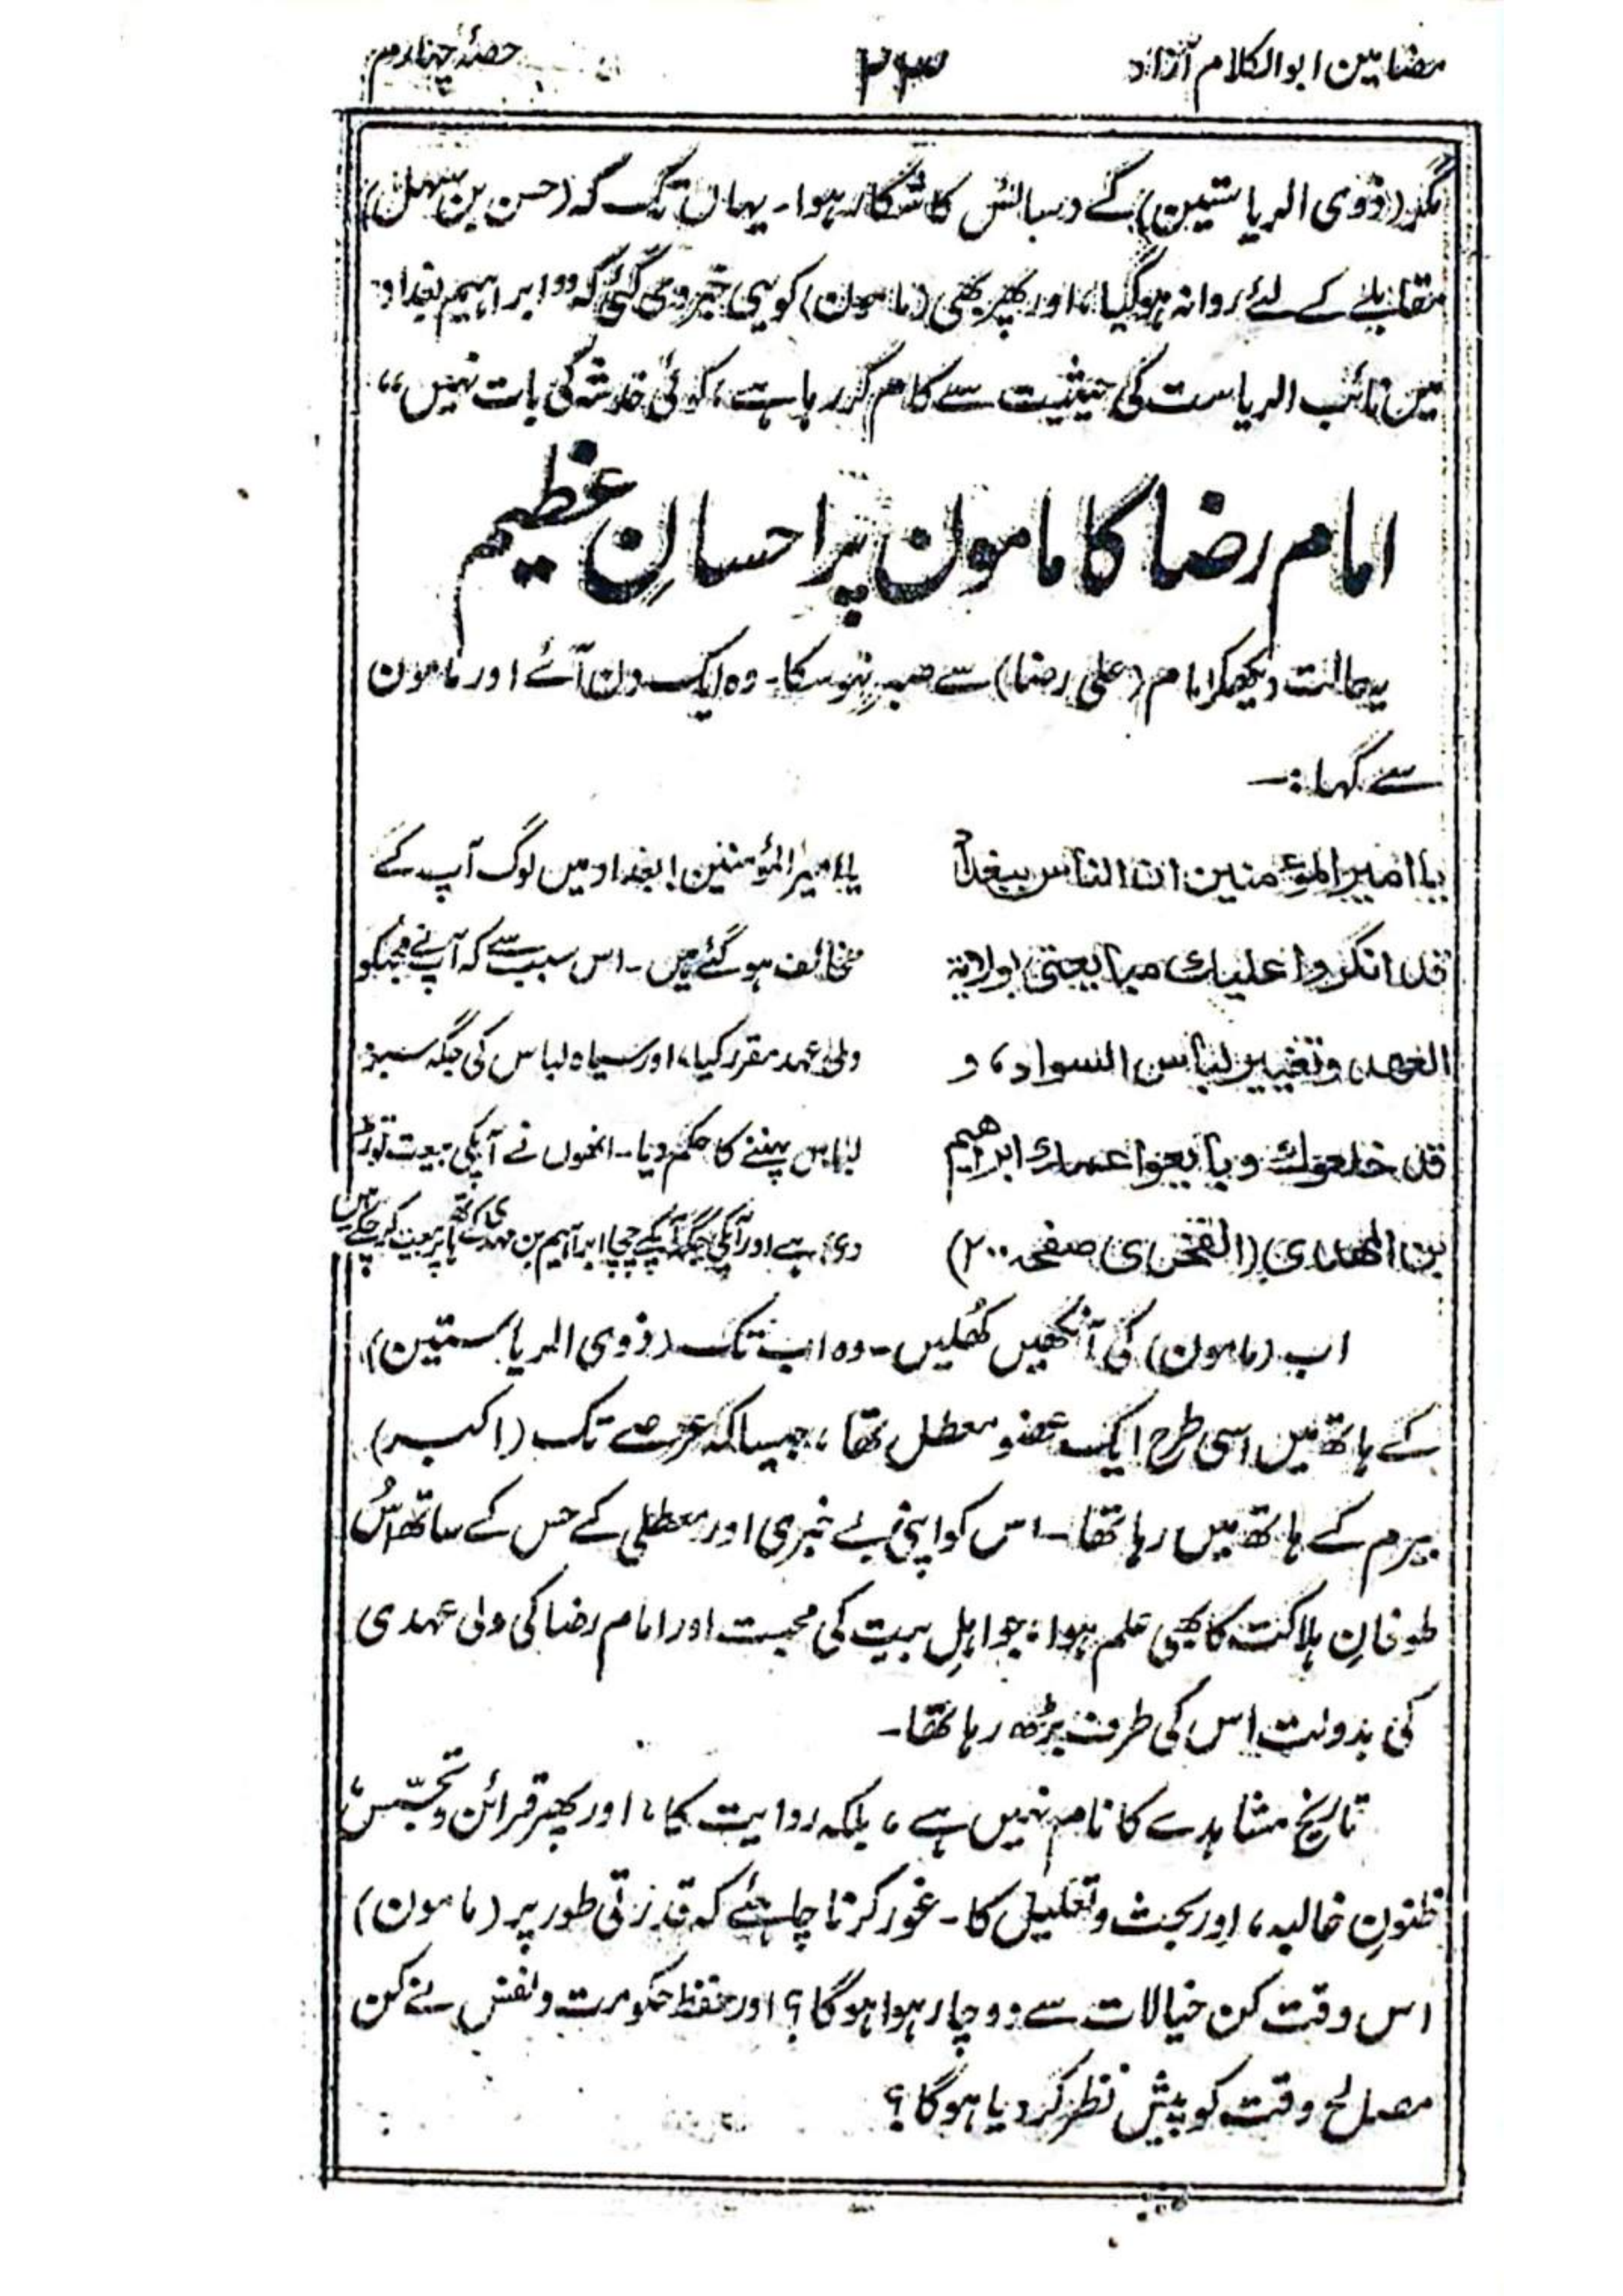 مضامین ابوالکلام آزاد ۲۳ حصۂ چہارم
مگر (ذوی الریاستین) کے دسائس کا شکار ہوا۔ یہاں تک کہ (حسن بن سہل)
مقابلے کے لئے روانہ ہوگیا، اور پھر بھی (مامون) کو یہی خبر دی گئی کہ "ابراہیم بغداد
میں نائب الریاست کی حیثیت سے کام کر رہا ہے، کوئی خدشہ کی بات نہیں"
امام رضا کا مامون پر احسانِ عظیم
یہ حالت دیکھکر امام (علی رضا) سے صبر نہوسکا۔ وہ ایک دن آئے اور مامون
سے کہا:۔
یا امیر المؤمنین ان الناس ببغداد
قد انکروا علیك مبایعتی بولایة
العهد، وتغییر لباس السواد، و
قد خلعوك وبایعوا عمك ابراهیم
بن المهدی (الفخری صفحہ ۲۰۰)
یا امیر المؤمنین! بغداد میں لوگ آپ کے
مخالف ہوگئے ہیں۔ اس سبب سے کہ آپ نے مجھکو
ولی عہد مقرر کیا، اور سیاہ لباس کی جگہ سبز
لباس پہننے کا حکم دیا۔ انھوں نے آپکی بیعت توڑ
دی ہے اور آپکی جگہ آپکے چچا ابراہیم بن مہدی کے ہاتھ پر بیعت کرچکے ہیں
اب (مامون) کی آنکھیں کھُلیں۔ وہ اب تک (ذوی الریاستین)
کے ہاتھ میں اسی طرح ایک عضو معطل تھا، جیسا کہ عرصے تک (اکبر)
بیرم کے ہاتھ میں رہا تھا۔ اس کو اپنی بے خبری اور معطلی کے حس کے ساتھ اُس
طوفانِ ہلاکت کا بھی علم ہوا، جو اہلِ بیت کی محبت اور امام رضا کی ولی عہدی
کی بدولت اس کی طرف بڑھ رہا تھا۔
تاریخ مشاہدے کا نام نہیں ہے، بلکہ روایت کا، اور پھر قرائن و تجسّس،
ظنونِ غالبہ، اور بحث و تعلیل کا۔ غور کرنا چاہئے کہ قدرتی طور پر (مامون)
اس وقت کن خیالات سے دوچار ہوا ہوگا؟ اور حفظ حکومت و نفس نے کن
مصالح وقت کو پیش نظر کر دیا ہوگا؟